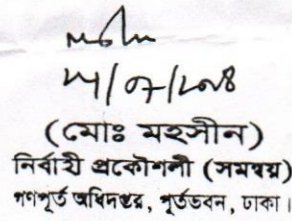 (মোঃ মহসীন)
নির্বাহী প্রকৌশলী (সমন্বয়)
গণপূর্ত অধিদপ্তর, পূর্তভবন, ঢাকা।